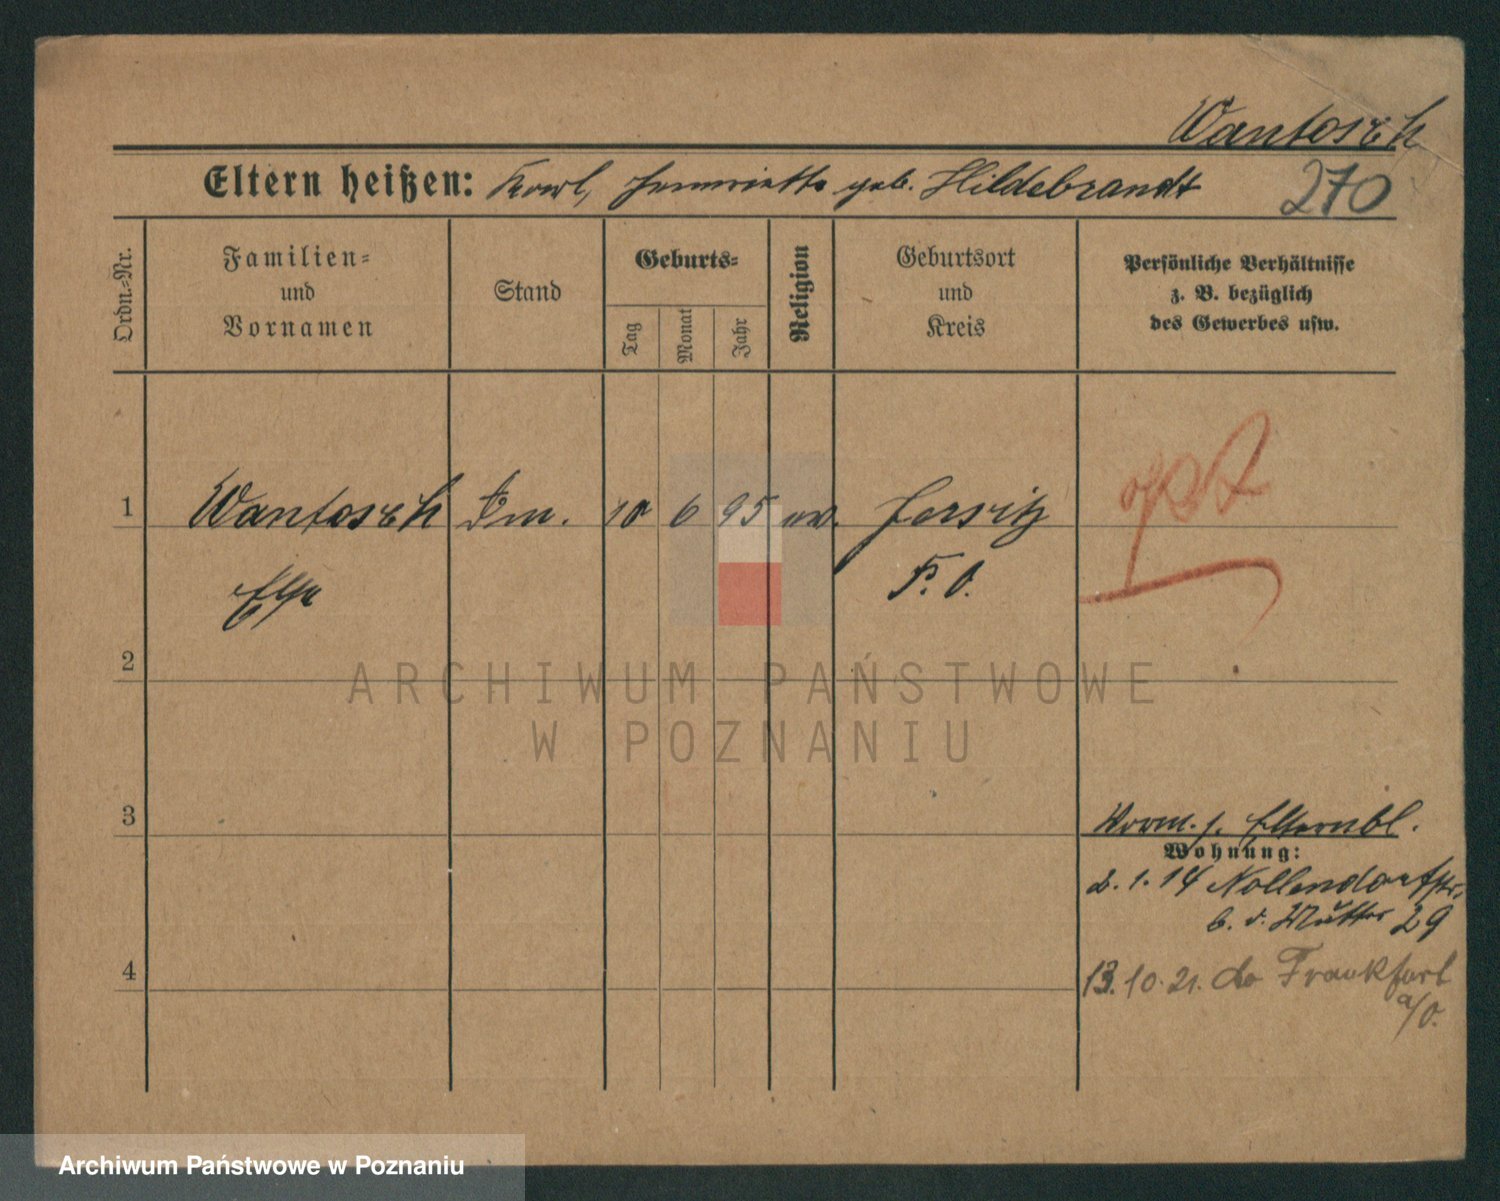 Wantosch
Eltern heißen: Karl, Henriette geb. Hildebrandt 270
Ordn.=Nr.
Familien=
und
Vornamen
Stand
Geburts=
Tag
Monat
Jahr
Religion
Geburtsort
und
Kreis
Persönliche Verhältnisse
z. B. bezüglich
des Gewerbes usw.
1 Wantosch 10 6 95 ev.
Else F. O.
2
ARCHIWUM PAŃSTWOWE
W POZNANIU
3
Elternbl.
Wohnung:
2.1.14 Nollendorfstr.
b. d. Mutter 29
4
13.10.21. Frankfurt
a/O.
Archiwum Państwowe w Poznaniu